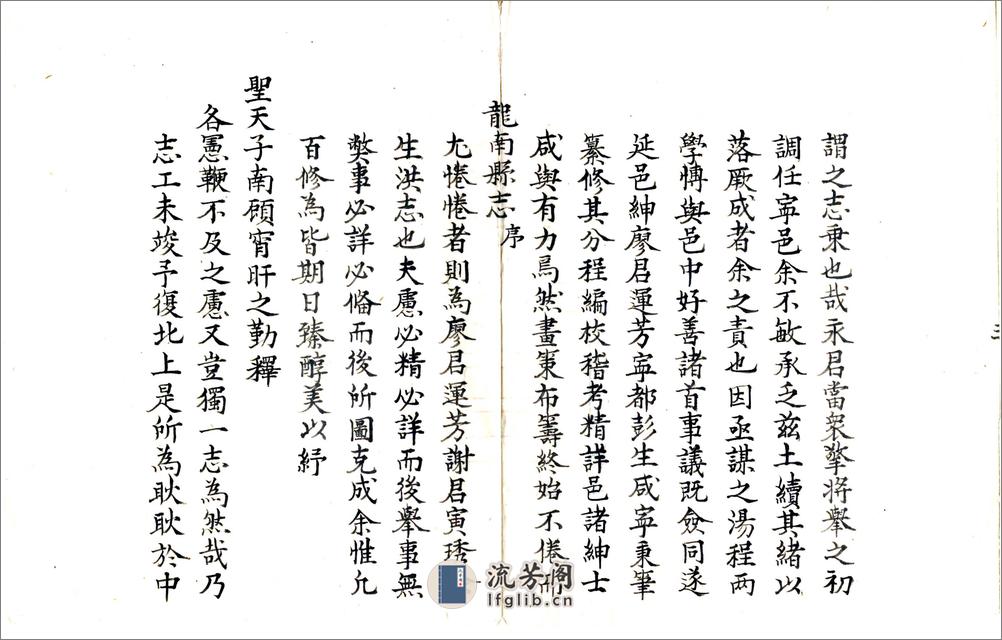 謂之志乗也哉永君當衆擎將舉之初
調任寧邑余不敏承乏茲土續其緒以
落厥成者余之責也因亟謀之湯程兩
學博與邑中好善諸首事議既僉同遂
延邑紳廖君運芳寧都彭生咸寧秉筆
纂修其分程編校稽考精詳邑諸紳士
咸與有力焉然畫策布籌終始不倦而
龍南縣志 序
尤惓惓者則為廖君運芳謝君寅琇
生洪志也夫慮必精必詳而後舉事無
獘事必詳必俻而後所圖克成余惟允
百修為皆期日臻醇美以紓
聖天子南顧宵旰之勤釋
各憲鞭不及之慮又豈獨一志為然哉乃
志工未竣予復北上是所為耿耿於中
三
流芳阁
lfglib.cn